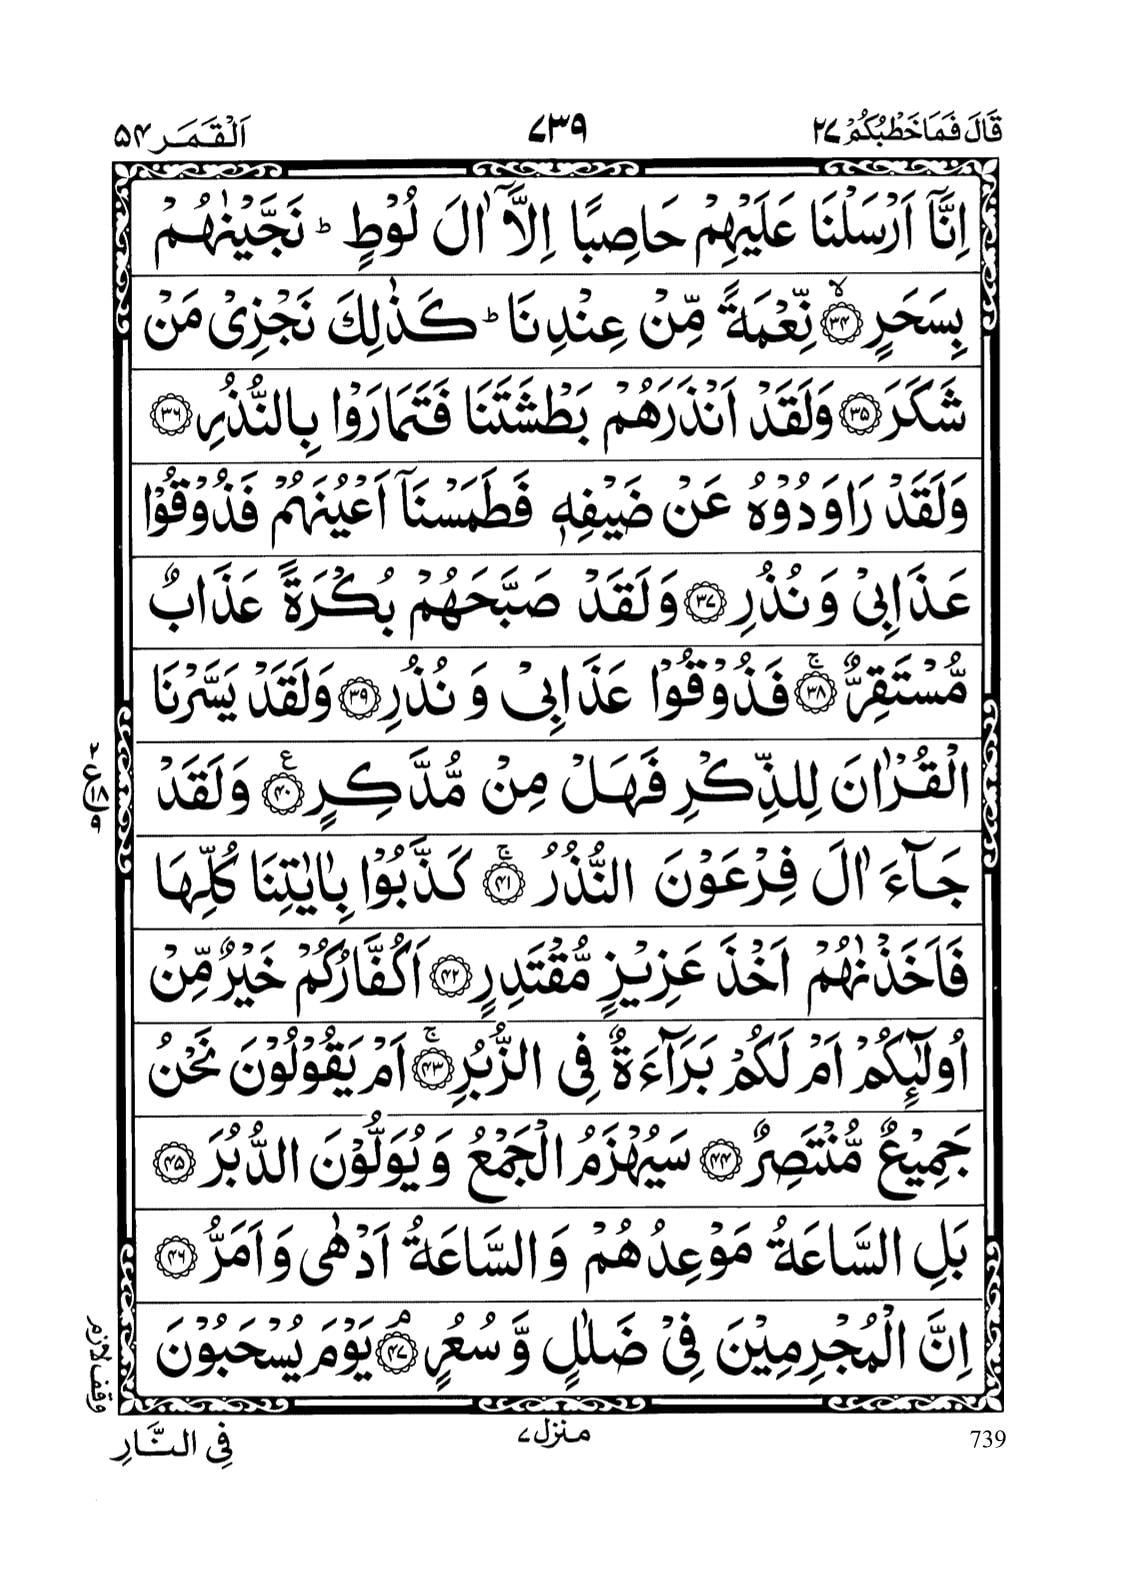 قَالَ فَمَا خَطْبُكُمْ ۲۷
۷۳۹
اَلْقَمَر ۵۴
اِنَّاۤ اَرْسَلْنَا عَلَيْهِمْ حَاصِبًا اِلَّاۤ اٰلَ لُوْطٍ ؕ نَجَّيْنٰهُمْ
بِسَحَرٍ ۙ‏﴿۳۴﴾ نِّعْمَةً مِّنْ عِنْدِنَا ؕ كَذٰلِكَ نَجْزِىْ مَنْ
شَكَرَ ﴿۳۵﴾ وَلَقَدْ اَنْذَرَهُمْ بَطْشَتَنَا فَتَمَارَوْا بِالنُّذُرِ ﴿۳۶﴾
وَلَقَدْ رَاوَدُوْهُ عَنْ ضَيْفِهٖ فَطَمَسْنَاۤ اَعْيُنَهُمْ فَذُوْقُوْا
عَذَابِىْ وَنُذُرِ ﴿۳۷﴾ وَلَقَدْ صَبَّحَهُمْ بُكْرَةً عَذَابٌ
مُّسْتَقِرٌّ ۚ‏﴿۳۸﴾ فَذُوْقُوْا عَذَابِىْ وَنُذُرِ ﴿۳۹﴾ وَلَقَدْ يَسَّرْنَا
الْقُرْاٰنَ لِلذِّكْرِ فَهَلْ مِنْ مُّدَّكِرٍ ﴿۴۰﴾ ع وَلَقَدْ
جَآءَ اٰلَ فِرْعَوْنَ النُّذُرُ ۚ‏﴿۴۱﴾ كَذَّبُوْا بِاٰيٰتِنَا كُلِّهَا
فَاَخَذْنٰهُمْ اَخْذَ عَزِيْزٍ مُّقْتَدِرٍ ﴿۴۲﴾ اَكُفَّارُكُمْ خَيْرٌ مِّنْ
اُولٰٓئِكُمْ اَمْ لَكُمْ بَرَآءَةٌ فِى الزُّبُرِ ۚ‏﴿۴۳﴾ اَمْ يَقُوْلُوْنَ نَحْنُ
جَمِيْعٌ مُّنْتَصِرٌ ﴿۴۴﴾ سَيُهْزَمُ الْجَمْعُ وَيُوَلُّوْنَ الدُّبُرَ ﴿۴۵﴾
بَلِ السَّاعَةُ مَوْعِدُهُمْ وَالسَّاعَةُ اَدْهٰى وَاَمَرُّ ﴿۴۶﴾
اِنَّ الْمُجْرِمِيْنَ فِىْ ضَلٰلٍ وَّسُعُرٍ ۘ‏﴿۴۷﴾ يَوْمَ يُسْحَبُوْنَ
وقف لازم
739
منزل ۷
فِى النَّارِ